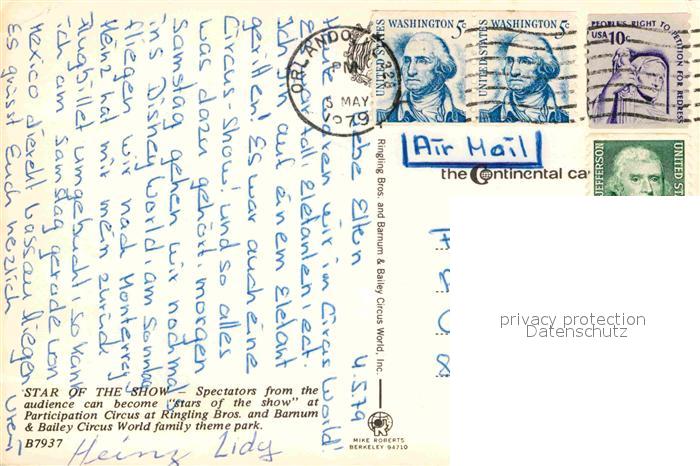 4.5.79
Liebe Eltern
Heute waren wir im Circus World!
Einmal toll, Elefanten ect.
Ich bin auf einem Elefant
geritten! Es war auch eine
Circus-Show! und so alles
was dazu gehört. morgen
Samstag gehen wir nochmals
ins Disney World, am Sonntag
fliegen wir nach Monterrey
Heinz hat mir mein zurück
Flugbillet umgebucht, so kann
ich am Samstag gerade von
Mexico direckt Nassau fliegen
Es grüsst Euch herzlich Uren
Heinz Lidy
STAR OF THE SHOW — Spectators from the
audience can become "stars of the show" at
Participation Circus at Ringling Bros. and Barnum
& Bailey Circus World family theme park.
B7937
Ringling Bros. and Barnum & Bailey Circus World, Inc.
MIKE ROBERTS
BERKELEY 94710
ORLANDO
PM
5 MAY
1979
WASHINGTON 5c
UNITED STATES
WASHINGTON 5c
UNITED STATES
PEOPLE'S RIGHT TO PETITION FOR REDRESS
USA 10c
JEFFERSON
UNITED ST
Air Mail
the Continental ca
privacy protection
Datenschutz